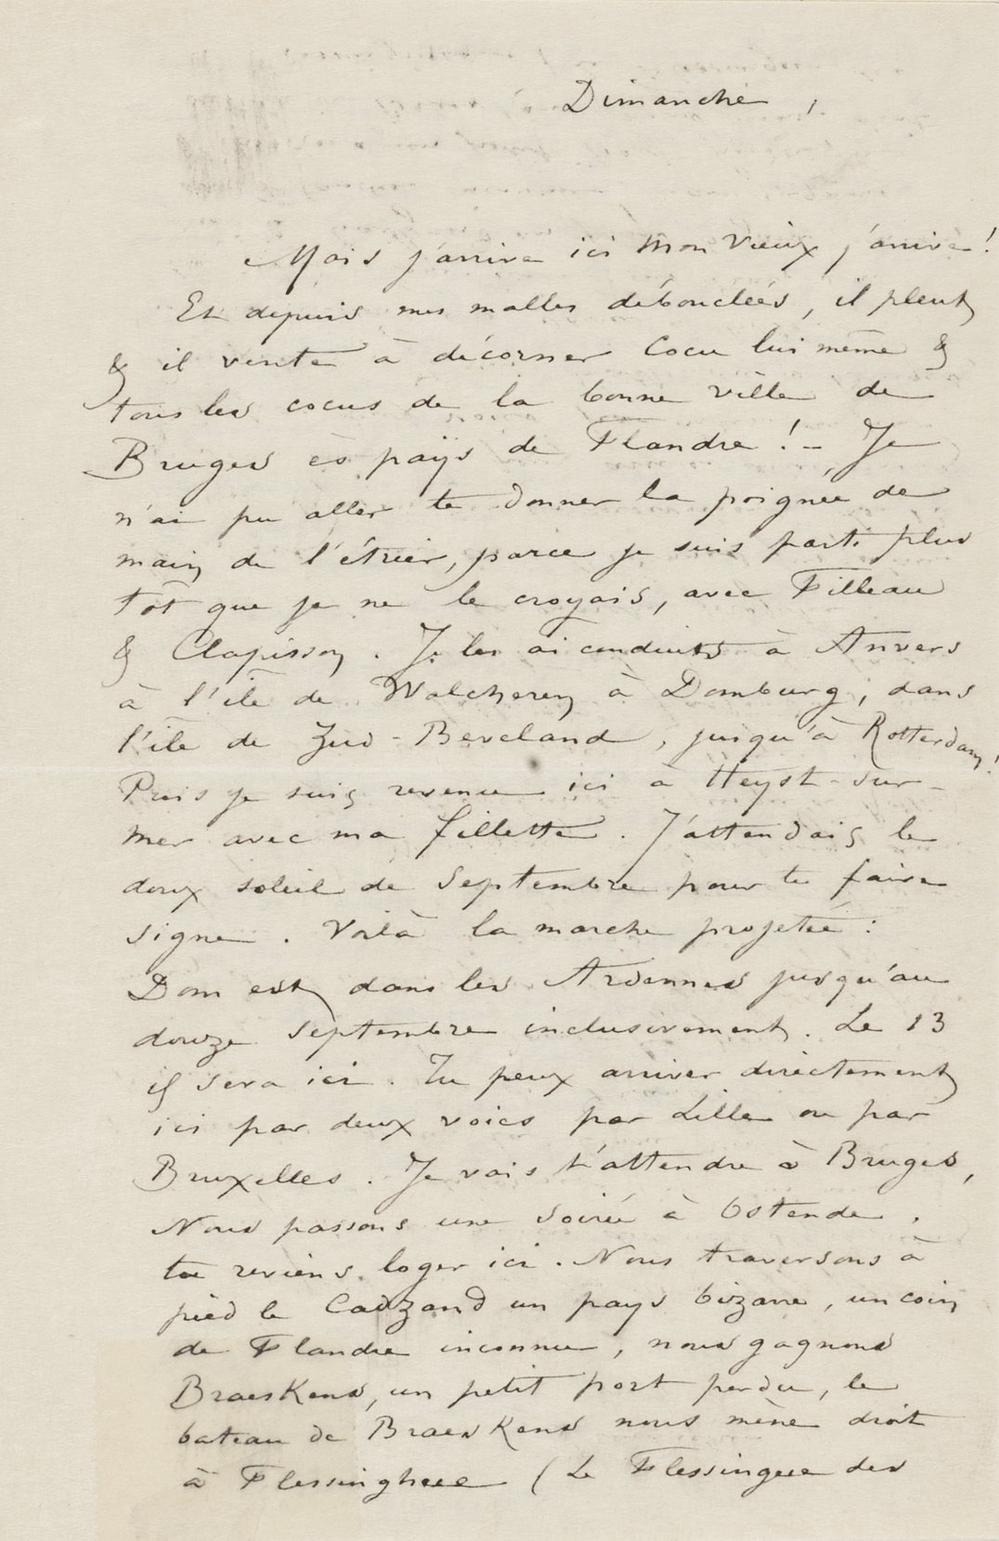 Dimanche,
Mais j'arrive ici mon vieux j'arrive!
Et depuis mes malles débouclées, il pleut
& il vente à décorner Cocu lui même &
tous les cocus de la bonne ville de
Bruges ès pays de Flandre! – Je
n'ai pu aller te donner la poignée de
main de l'étrier, parce je suis parti plus
tôt que je ne le croyais, avec Filleau
& Clapisson. Je les ai conduits à Anvers
à l'île de Walcheren à Domburg, dans
l'île de Zud-Beveland, jusqu'à Rotterdam!
Puis je suis revenu ici à Heyst-sur-
mer avec ma fillette. J'attendais le
doux soleil de Septembre pour te faire
signe. Voilà la marche projetée:
Dom est dans les Ardennes jusqu'au
douze Septembre inclusivement. Le 13
il sera ici. Tu peux arriver directement
ici par deux voies par Lille ou par
Bruxelles. Je vais t'attendre à Bruges,
Nous passons une soirée à Ostende.
tu reviens loger ici. Nous traversons à
pied le Cadzand un pays bizarre, un coin
de Flandre inconnu, nous gagnons
Braeskens, un petit port perdu, le
bateau de Braeskens nous mène droit
à Flessinghue (Le Flessingue des